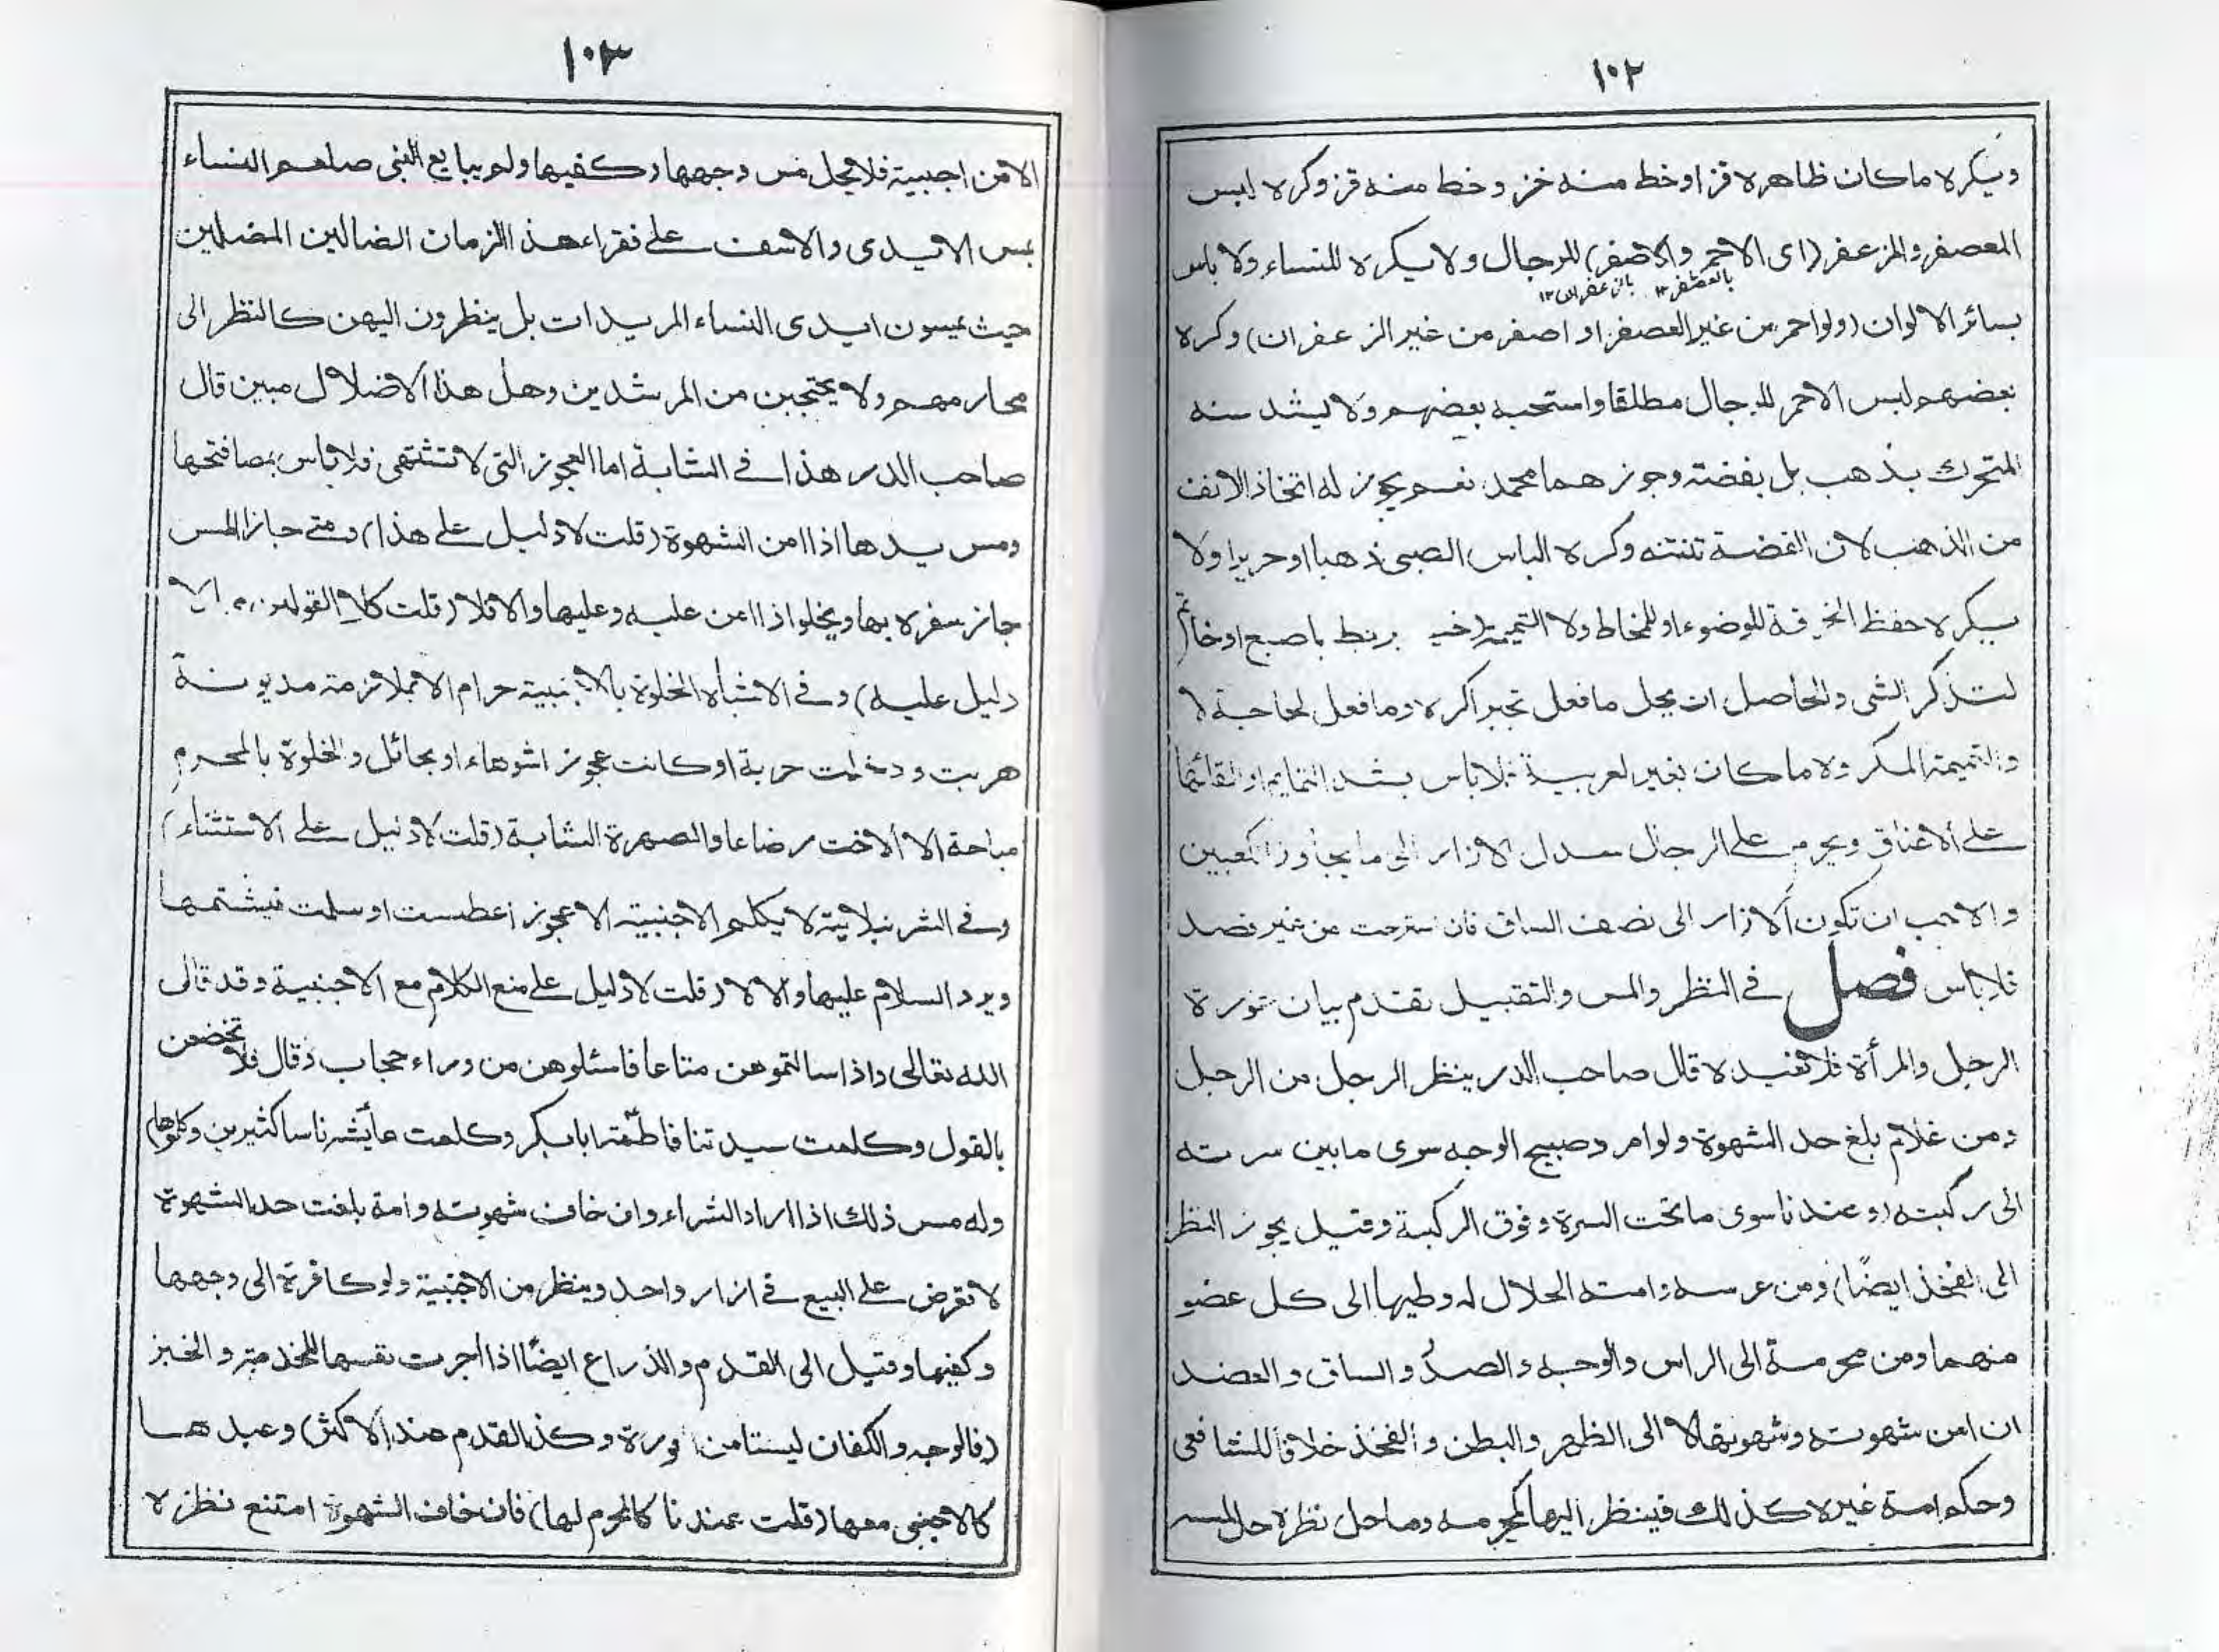 ١٠٢
ويكره ما كان ظاهره قز او خط منه خز وخط منه قز وكره لبس
المعصفر والمزعفر (اى الاحمر والاصفر) للرجال ولا يكره للنساء ولا باس
بالعصفر ١٢ بالزعفران ١٢
بسائر الالوان (ولو احمر من غير العصفر او اصفر من غير الزعفران) وكره
بعضهم لبس الاحمر للرجال مطلقا واستحبه بعضهم ولا يشد سنه
المتحرك بذهب بل بفضة وجوزهما محمد نعم يجوز له اتخاذ الانف
من الذهب لان الفضة تنتنه وكره الباس الصبى ذهبا او حريرا ولا
يكره حفظ الخرقة للوضوء او للمخاط ولا التميمة يربط باصبع او خاتم
لتذكر الشى والحاصل ان كل ما فعل تجبرا كره وما فعل لحاجة لا
والتميمة المكروه ما كان بغير لعربية فلا باس بشد التمايم او القائها
على الاعناق ويحرم على الرجال سدل الازار الى ما يجاوز الكعبين
والاحب ان تكون الازار الى نصف الساق فان استرخت من غير قصد
فلا باس فصل فى النظر والمس والتقبيل تقدم بيان عورة
الرجل والمرأة فلا نعيده قال صاحب الدر ينظر الرجل من الرجل
ومن غلام بلغ حد الشهوة ولو امرد صبيح الوجه سوى ما بين سرته
الى ركبته (وعندنا سوى ما تحت السرة وفوق الركبة وقيل يجوز النظر
الى الفخذ ايضًا) ومن عرسه وامته الحلال له وطيها الى كل عضو
منهما ومن محرمة الى الراس والوجه والصدر والساق والعضد
ان امن شهوته وشهوتها لا الى الظهر والبطن والفخذ خلافا للشافعى
وحكم امة غيره كذلك فينظر اليها كمحرمه وما حل نظره حل لمسه
١٠٣
الا من اجنبية فلا يحل مس وجهها وكفيها ولم يبايع النبى صلعم النساء
بمس الايدى والاسف على فقراء هذا الزمان الضالين المضلين
حيث يمسون ايدى النساء المريدات بل ينظرون اليهن كالنظر الى
محارمهم ولا يحتجبن من المرشدين وهل هذا الا ضلال مبين قال
صاحب الدر هذا فى الشابة اما العجوز التى لا تشتهى فلا باس بمصافحتها
ومس يدها اذا امن الشهوة (قلت لا دليل على هذا) ومتى جاز المس
جاز سفره بها ويخلو اذا امن عليه وعليها والا فلا (قلت كلا القولين مما لا
دليل عليه) وفى الاشباه الخلوة بالاجنبية حرام الا لملازمة مديونة
هربت ودخلت خربة او كانت عجوزا شوهاء او بحائل والخلوة بالمحرم
مباحة الا الاخت رضاعا والصهرة الشابة (قلت لا دليل على الاستثناء)
وفى الشرنبلالية لا يكلم الاجنبية الا عجوزا عطست او سلمت فيشتمها
ويرد السلام عليها والا لا (قلت لا دليل على منع الكلام مع الاجنبية وقد قال
الله تعالى واذا سالتموهن متاعا فاسئلوهن من وراء حجاب وقال فلا تخضعن
بالقول وكلمت سيدتنا فاطمة ابا بكر وكلمت عائشة ناسا كثيرين وكلموها)
وله مس ذلك اذا اراد الشراء وان خاف شهوته وامة بلغت حد الشهوة
لا تعرض على البيع فى ازار واحد وينظر من الاجنبية ولو كافرة الى وجهها
وكفيها وقيل الى القدم والذراع ايضًا اذا اجرت نفسها للخدمة والخبز
(فالوجه والكفان ليستا من العورة وكذا القدم عند الاكثر) وعبدها
كالاجنبى معها (قلت عندنا كالمحرم لها) فان خاف الشهوة امتنع نظره